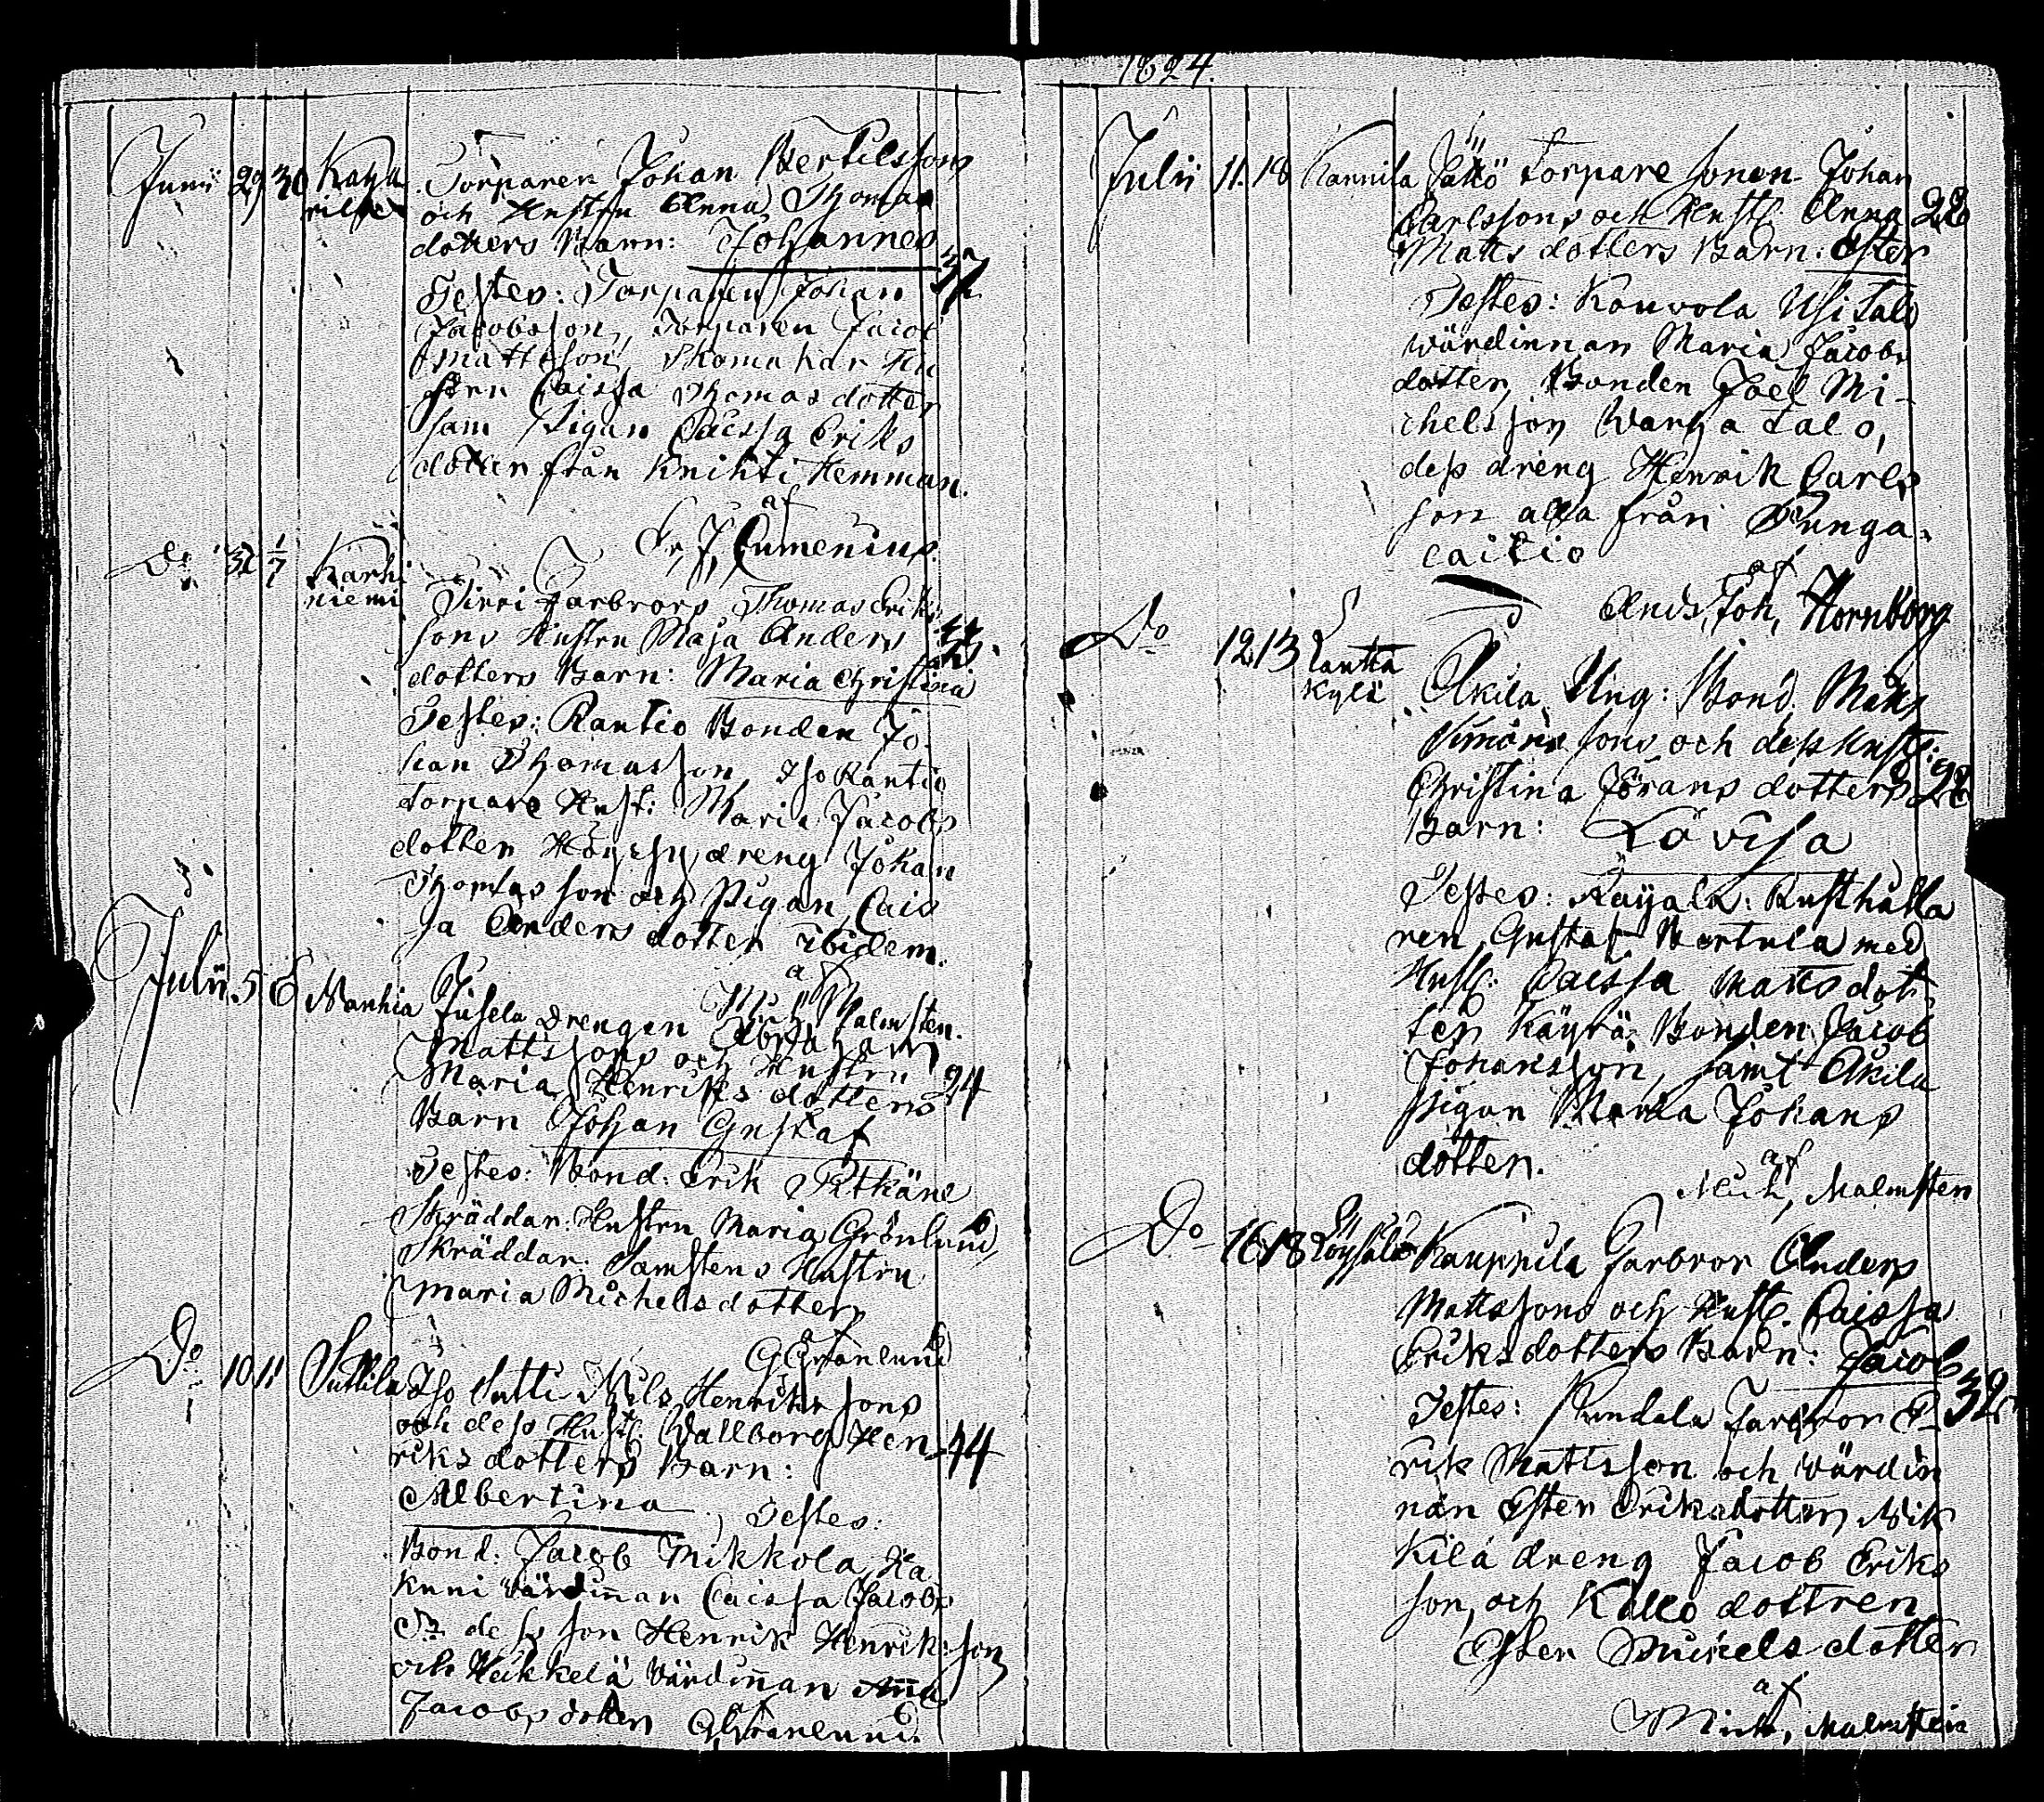 Junii 29 30 Torparen Johan Bertilssons
och Hustru Anna Thomas
dotters Barn: Johannes
37
Testes: Torparen Johan
Jacobsson, Torparen Jacob
Mattsson Skomakar Hu
strn Caissa Thomasdotter
sam Pigan Caissa Eriks
dotter från Knihti Hemman.
af
Fr. J. Cumenius.
Do 1/7 Karhi
niemi Pirri Farbrors Thomas Erik
sons Hustru Maja Anders
dotters Barn: Maria Christina
Testes: Rantio Bonden Jo
han Thomasson, Iso Rantio
torpare Hust: Maria Jacobs
dotter dreng Johan
Thomasson och Pigan Cais
sa Anders dotter ibidem.
af
Mich Malmsten.
Julii 5 6 Manhia Jusela drengen Abraham
Mattssons och Hustru
Maria Henriksdotters 24
Barn Johan Gustaf
Testes: Bond: Erik Pitkäne
Skräddar: Hustru Maria Grönlund,
Skräddar: Samstens Hustru
Maria Michelsdotter
af
G Grönlund
Do 10 11 Suttila Iso Sutti Nils Henrikssons
och dess Hust: Wallborg Hen 44
riksdotters Barn:
Albertina, Testes:
Bond: Jacob Mikkola, Ha
kuni Värdinnan Caissa Jacobs
Dr dess son Henrik Henriksson
och Heikkelä Värdinnan Anna
Jacobsdotter af G Grönlund.
1824.
Julii 11. 18 Karnila Jäkö Torpare sonen Johan
Carlssons och Hust: Anna 28
Matts dotters Barn: Ester
Testes: Kouvola Usi talo
wärdinnan Maria Jacobs
dotter, Bonden Joel Mi-
chelsson Wanha talo,
dess dreng Henrik Carls
son alla från Punga-
caitio
af
And. Joh, Hornborg
Do 12 13 Rautta
kylä Ukila Ung: Bond. Matts
Simons sons och dess Hust:
Christina Jörans dotters 28
Barn: Lovisa
Testes: Käyälä: Rusthålla
ren Gustaf Bertula med
Hust: Caissa Mattsdot
ter Käyrä: Bonden Jacob
Johansson, samt Ukila
pigan Maria Johans
dotter.
af
Mich, Malmsten
Do 16 18 Kauppila Farbror Anders
Mattssons och Hust. Caissa
Eriksdotters Barn: Jacob
32
Testes: Pundala Farbror E-
rik Mattsson och Värdin
nan Ester Eriksdotter, Mik
kilä dreng Jacob Eriks
son, och Kallo dottren
Ester Michelsdotter
af
Mich, Malmsten